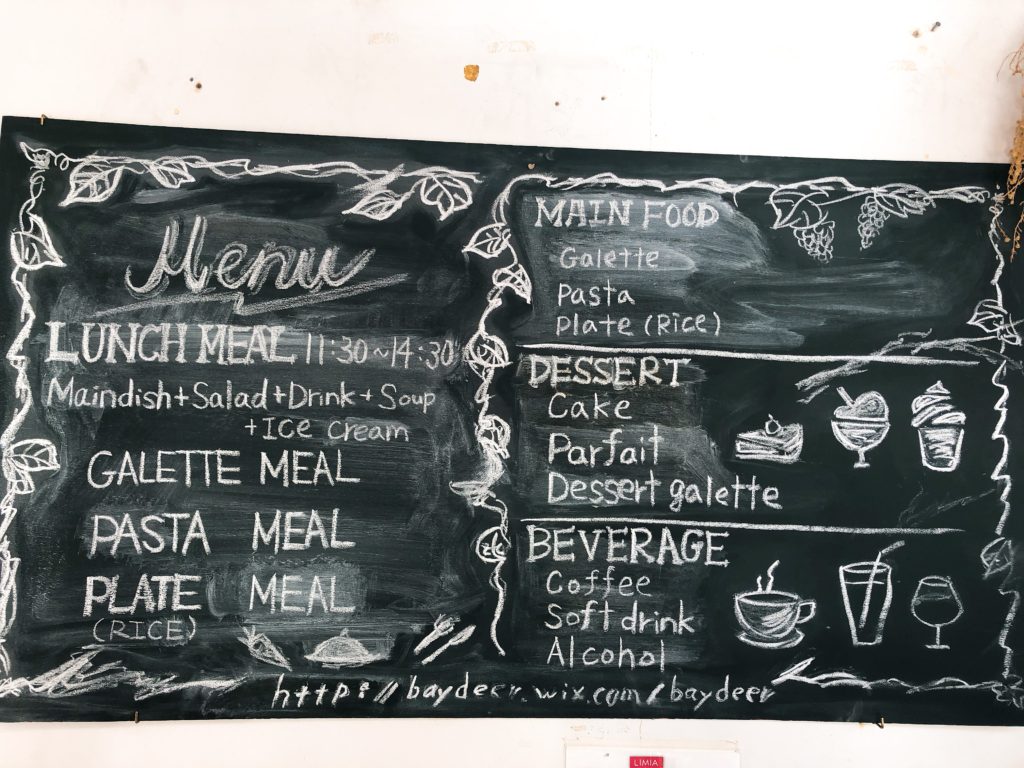 Menu
LUNCH MEAL 11:30~14:30
Maindish+Salad+Drink+Soup
+Ice cream
GALETTE MEAL
PASTA MEAL
PLATE MEAL
(RICE)
MAIN FOOD
Galette
Pasta
Plate (Rice)
DESSERT
Cake
Parfait
Dessert galette
BEVERAGE
Coffee
Soft drink
Alcohol
http://baydeer.wix.com/baydeer
LIMIA